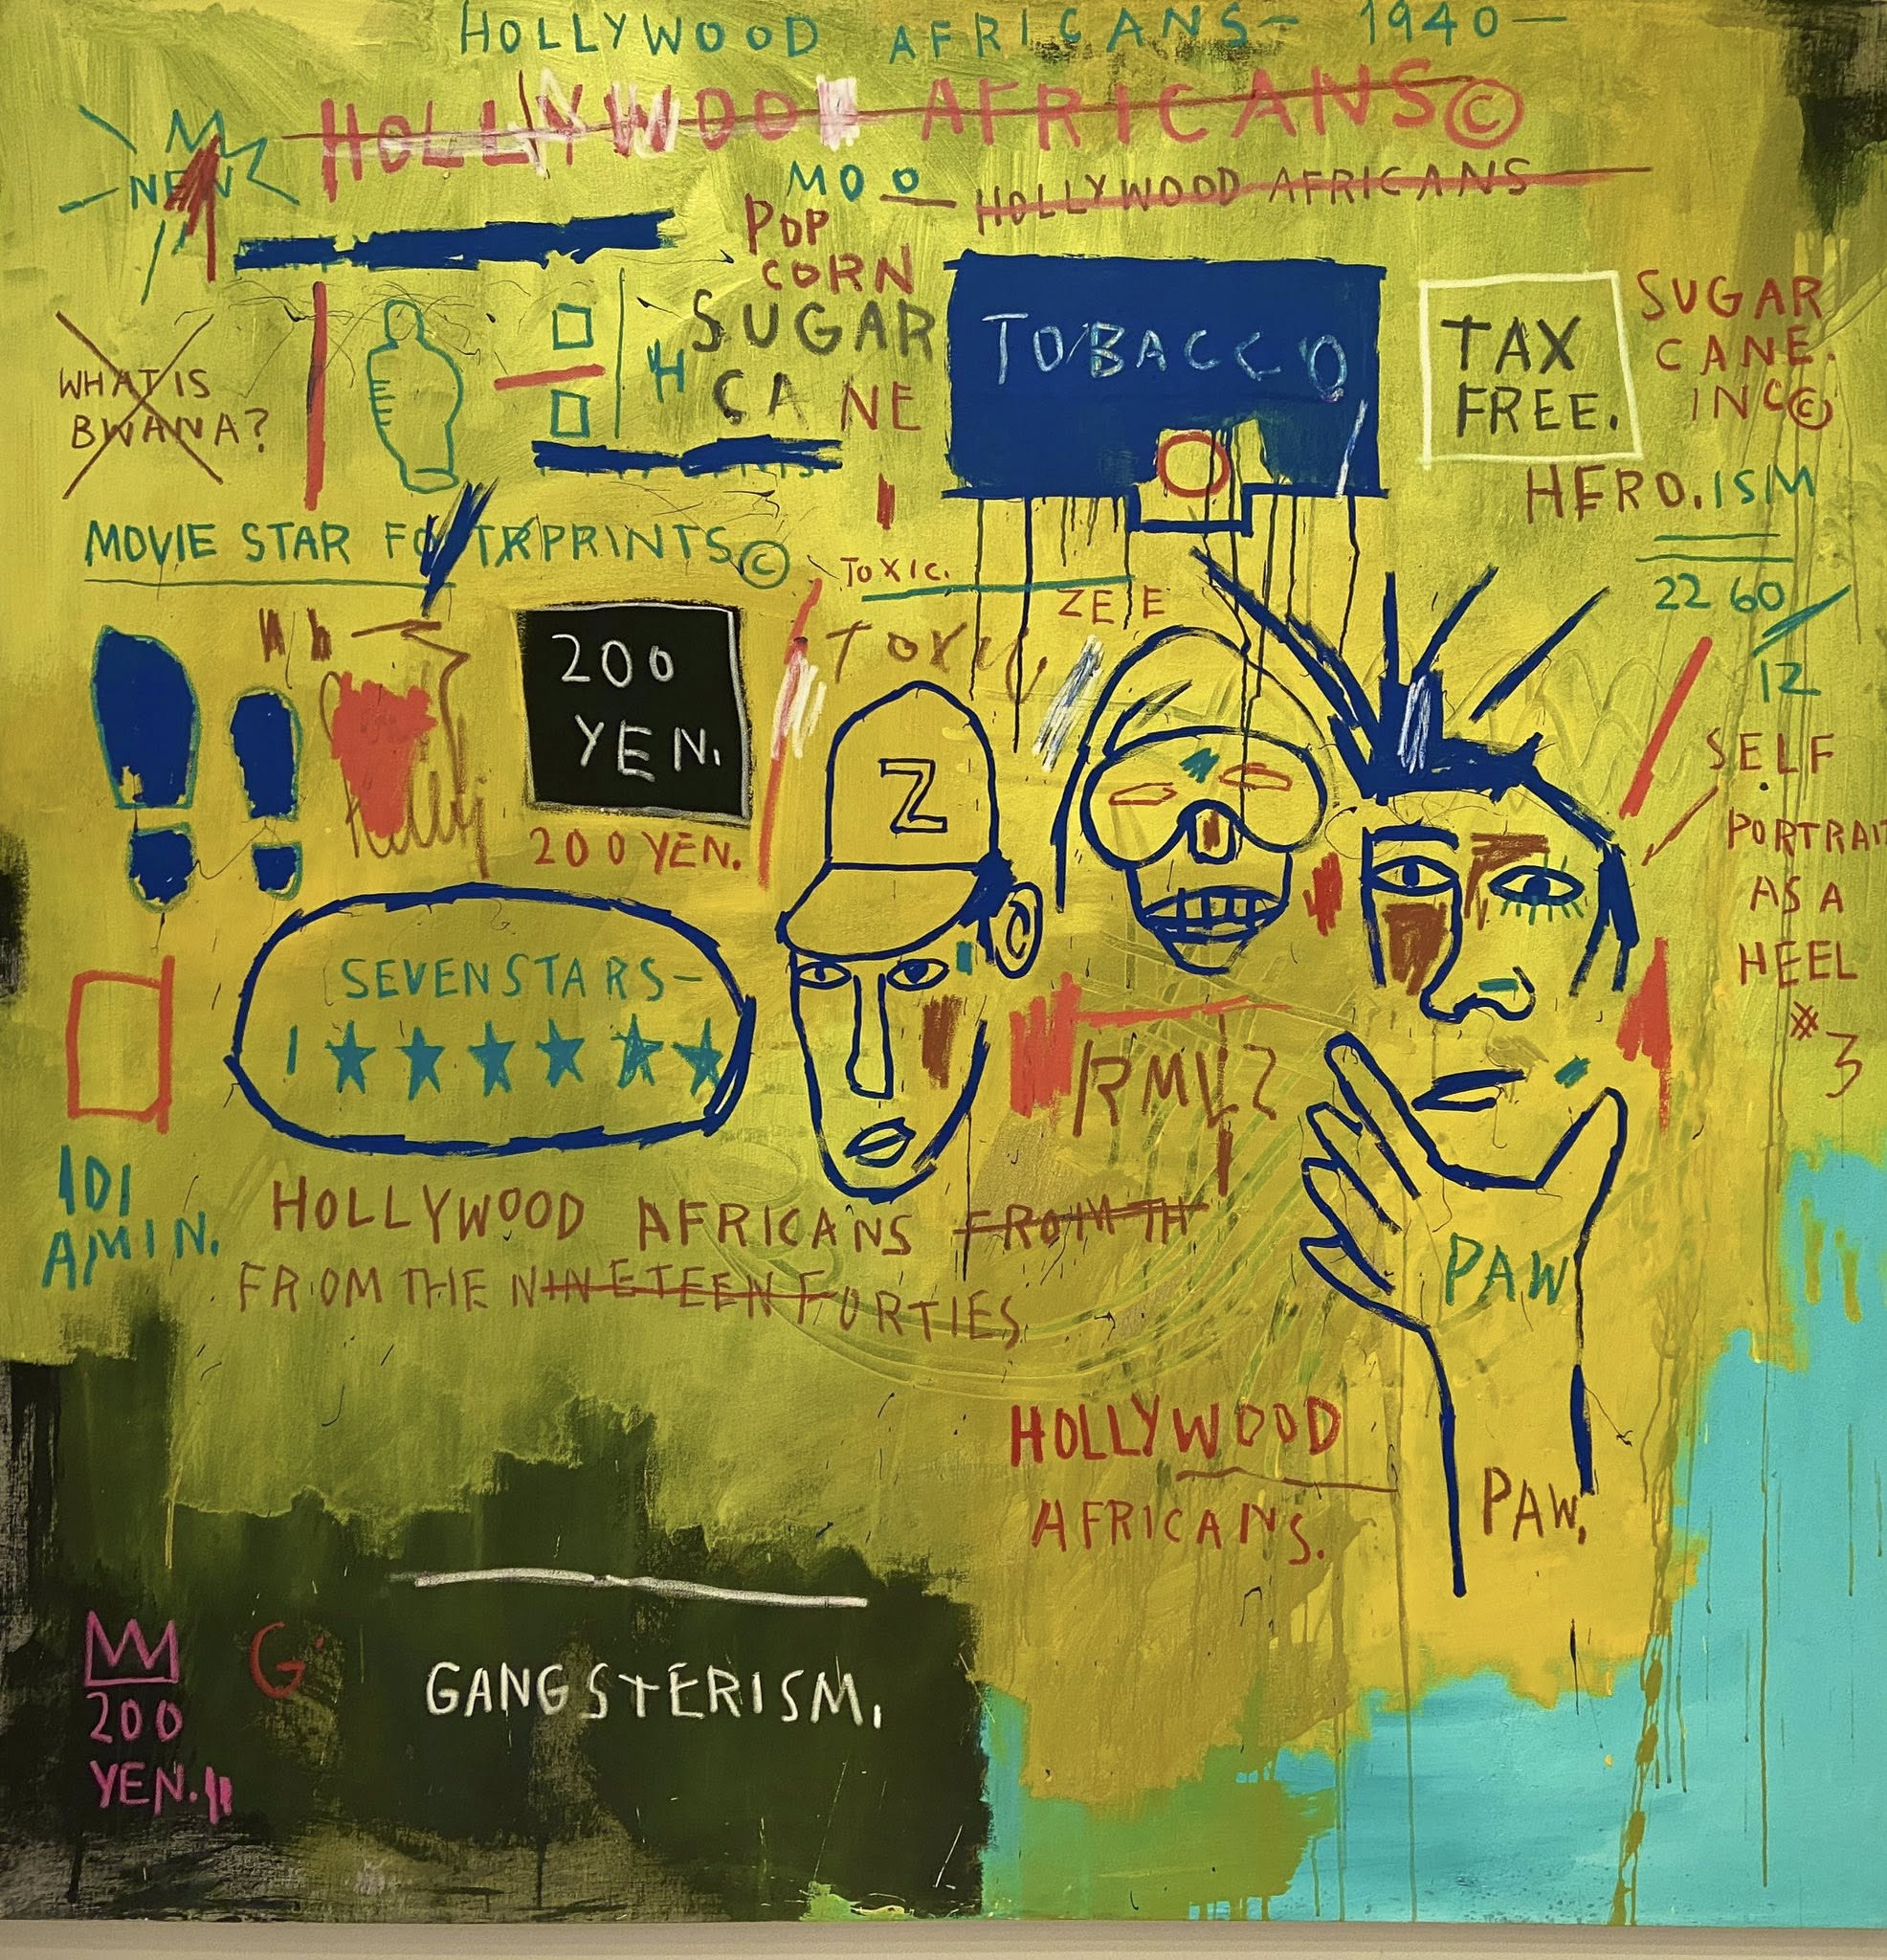 HOLLYWOOD AFRICANS— 1940—
HOLLYWOOD AFRICANS©
NEW
MOO
HOLLYWOOD AFRICANS
POP
CORN
SUGAR
CANE
TOBACCO
TAX
FREE.
SUGAR
CANE.
INC©
HERO.ISM
WHAT IS
BWANA?
MOVIE STAR FOOTPRINTS©
TOXIC.
2260
12
200
YEN.
200 YEN.
TOXIC
Z
SELF
PORTRAIT
AS A
HEEL
#3
SEVEN STARS—
1
RMLZ
IDI
AMIN.
HOLLYWOOD AFRICANS FROM TH
FROM THE NINETEEN FORTIES
PAW
HOLLYWOOD
AFRICANS.
PAW,
200
YEN.
G
GANGSTERISM.